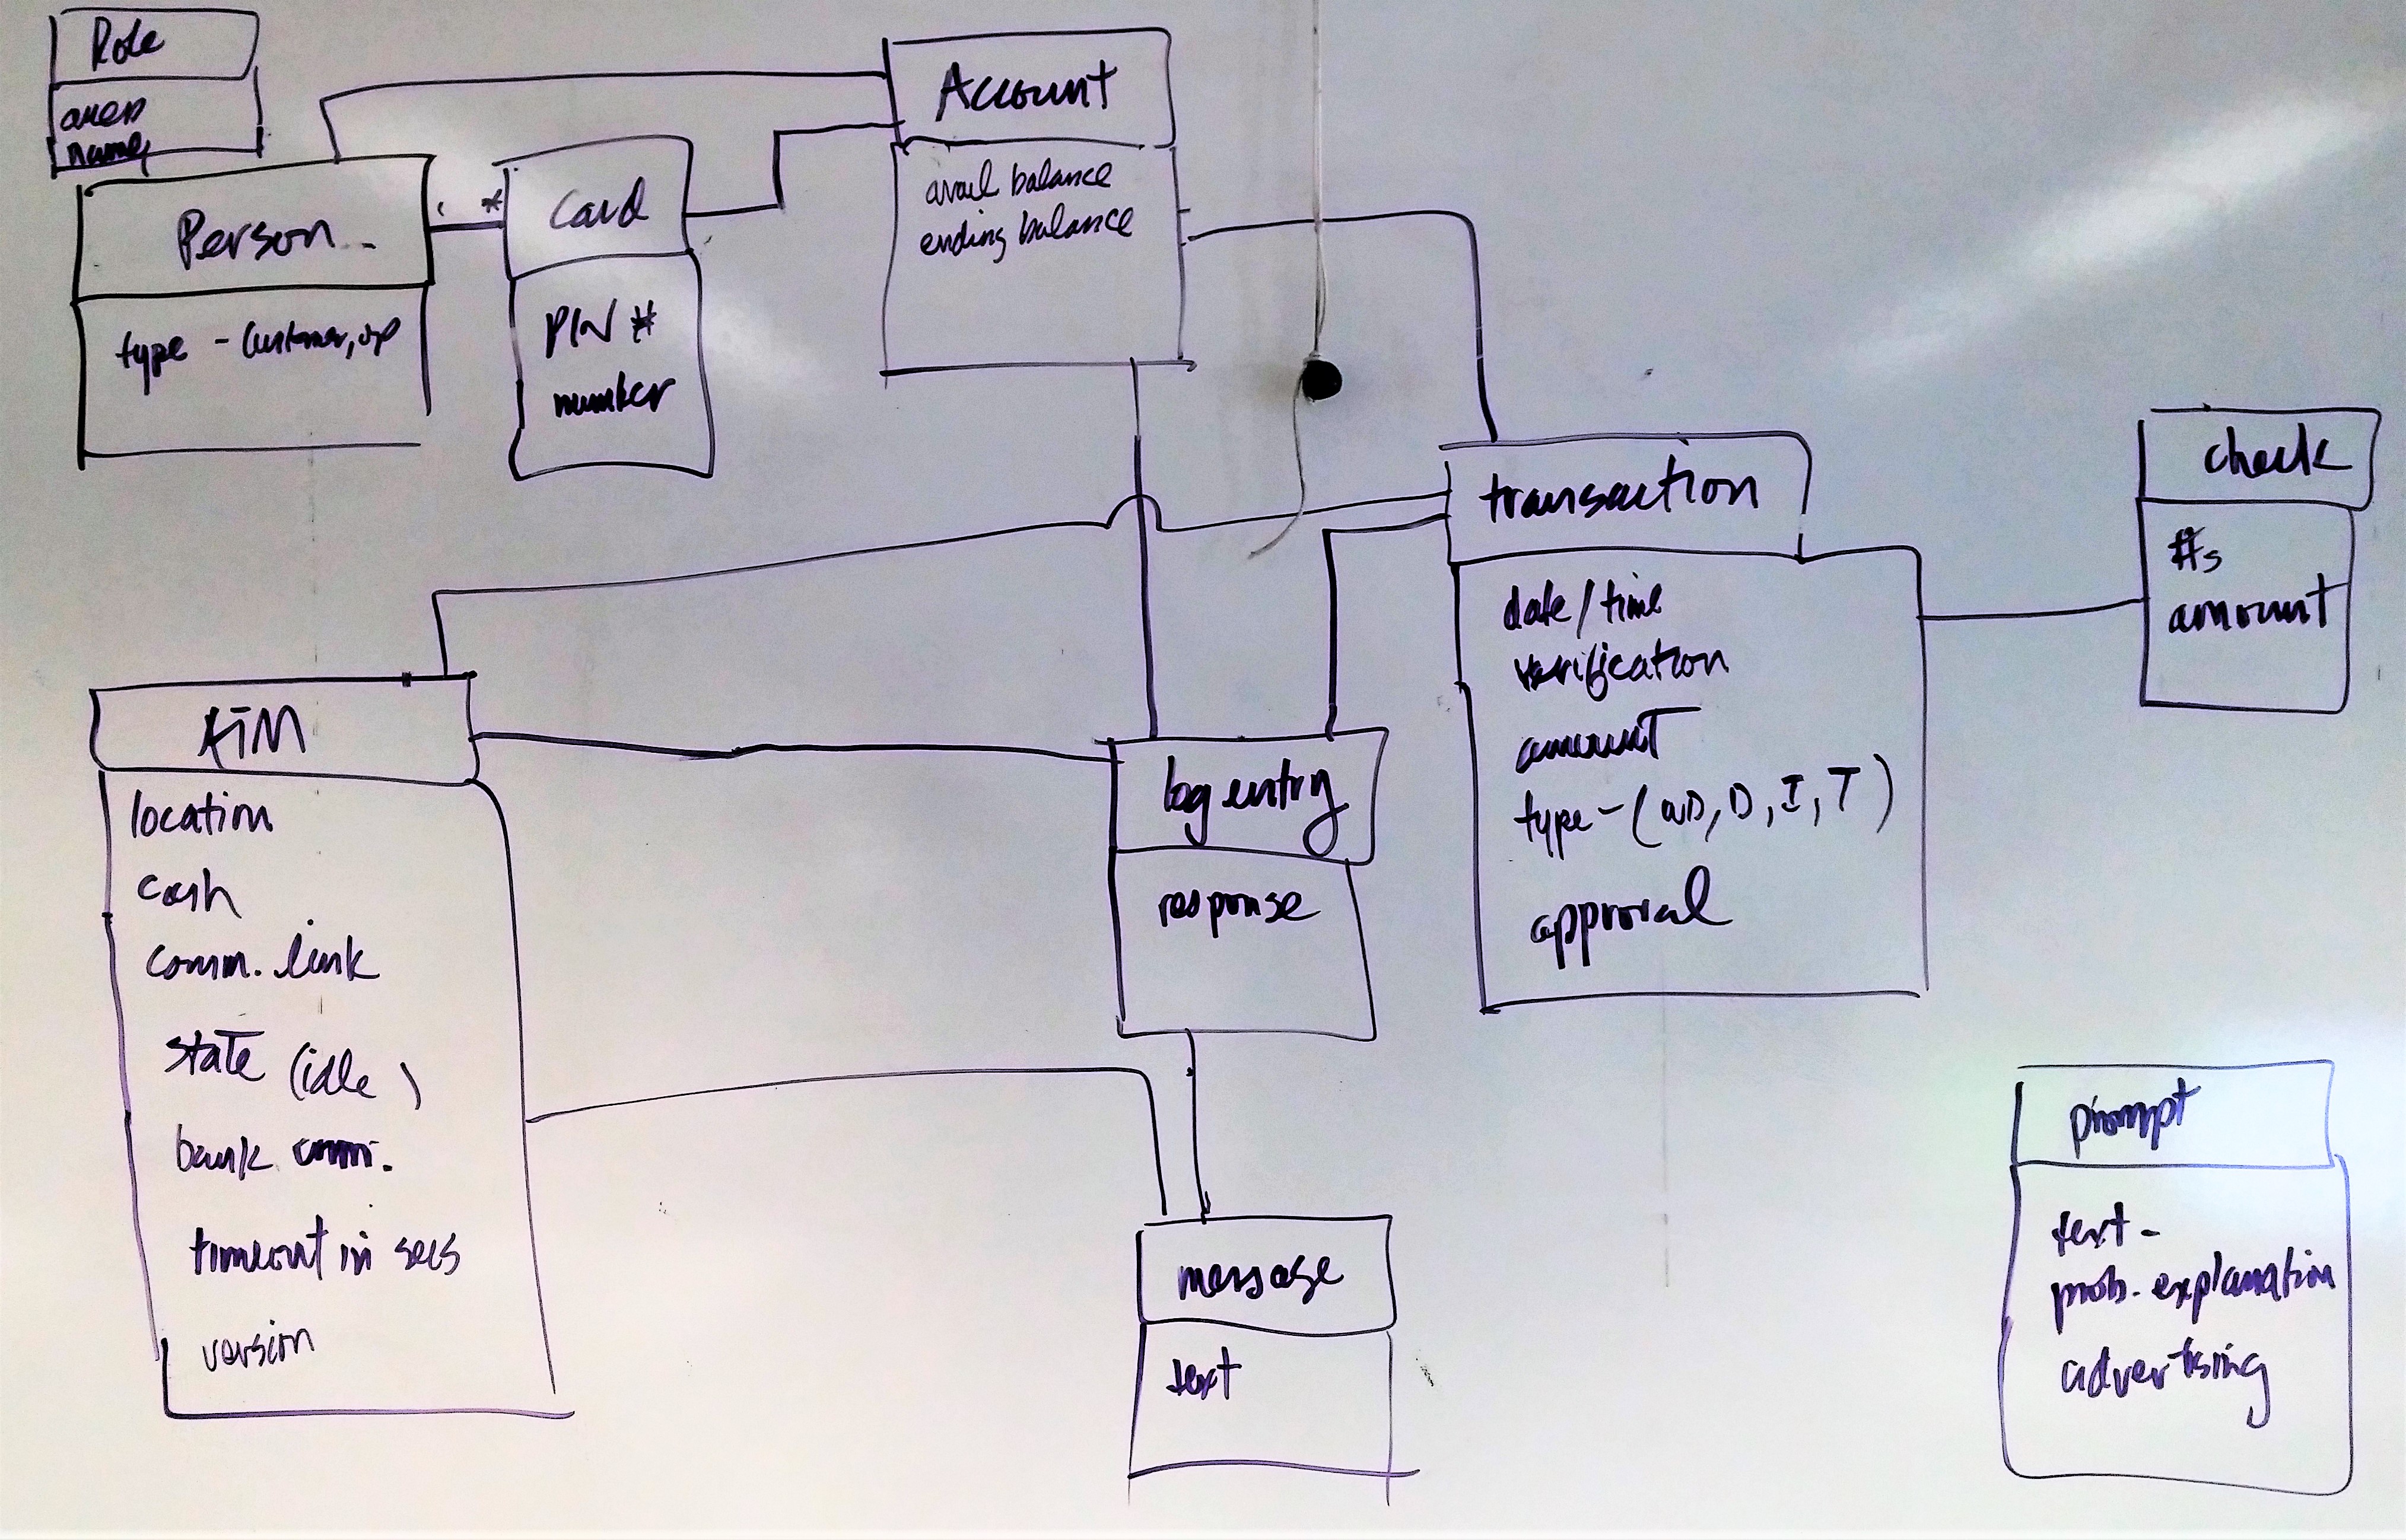 Role
name
Person
type - Customer, op
1 *
Card
PIN #
number
Account
avail balance
ending balance
transaction
date/time
verification
amount
type - (WD, D, I, T)
approval
check
#s
amount
ATM
location
cash
comm. link
state (idle )
bank comm.
timeout in secs
version
log entry
response
message
text
prompt
text -
prob. explanation
advertising